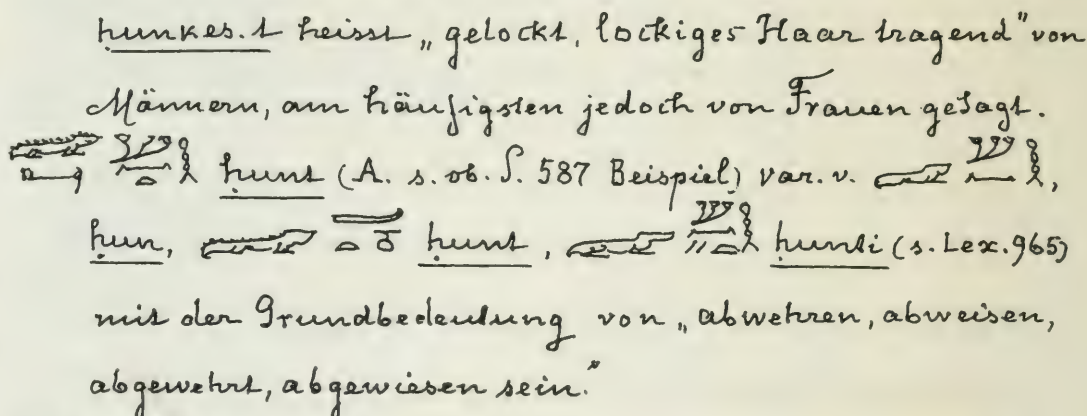 ḥunkes.t heisst „gelockt, lockiges Haar tragend" von
Männern, am häufigsten jedoch von Frauen gesagt.
ḥunt (A. s. ob. S. 587 Beispiel) var. v.
ḥun, ḥunt, ḥunti (s. Lex. 965)
mit der Grundbedeutung von „abwehren, abweisen,
abgewehrt, abgewiesen sein."